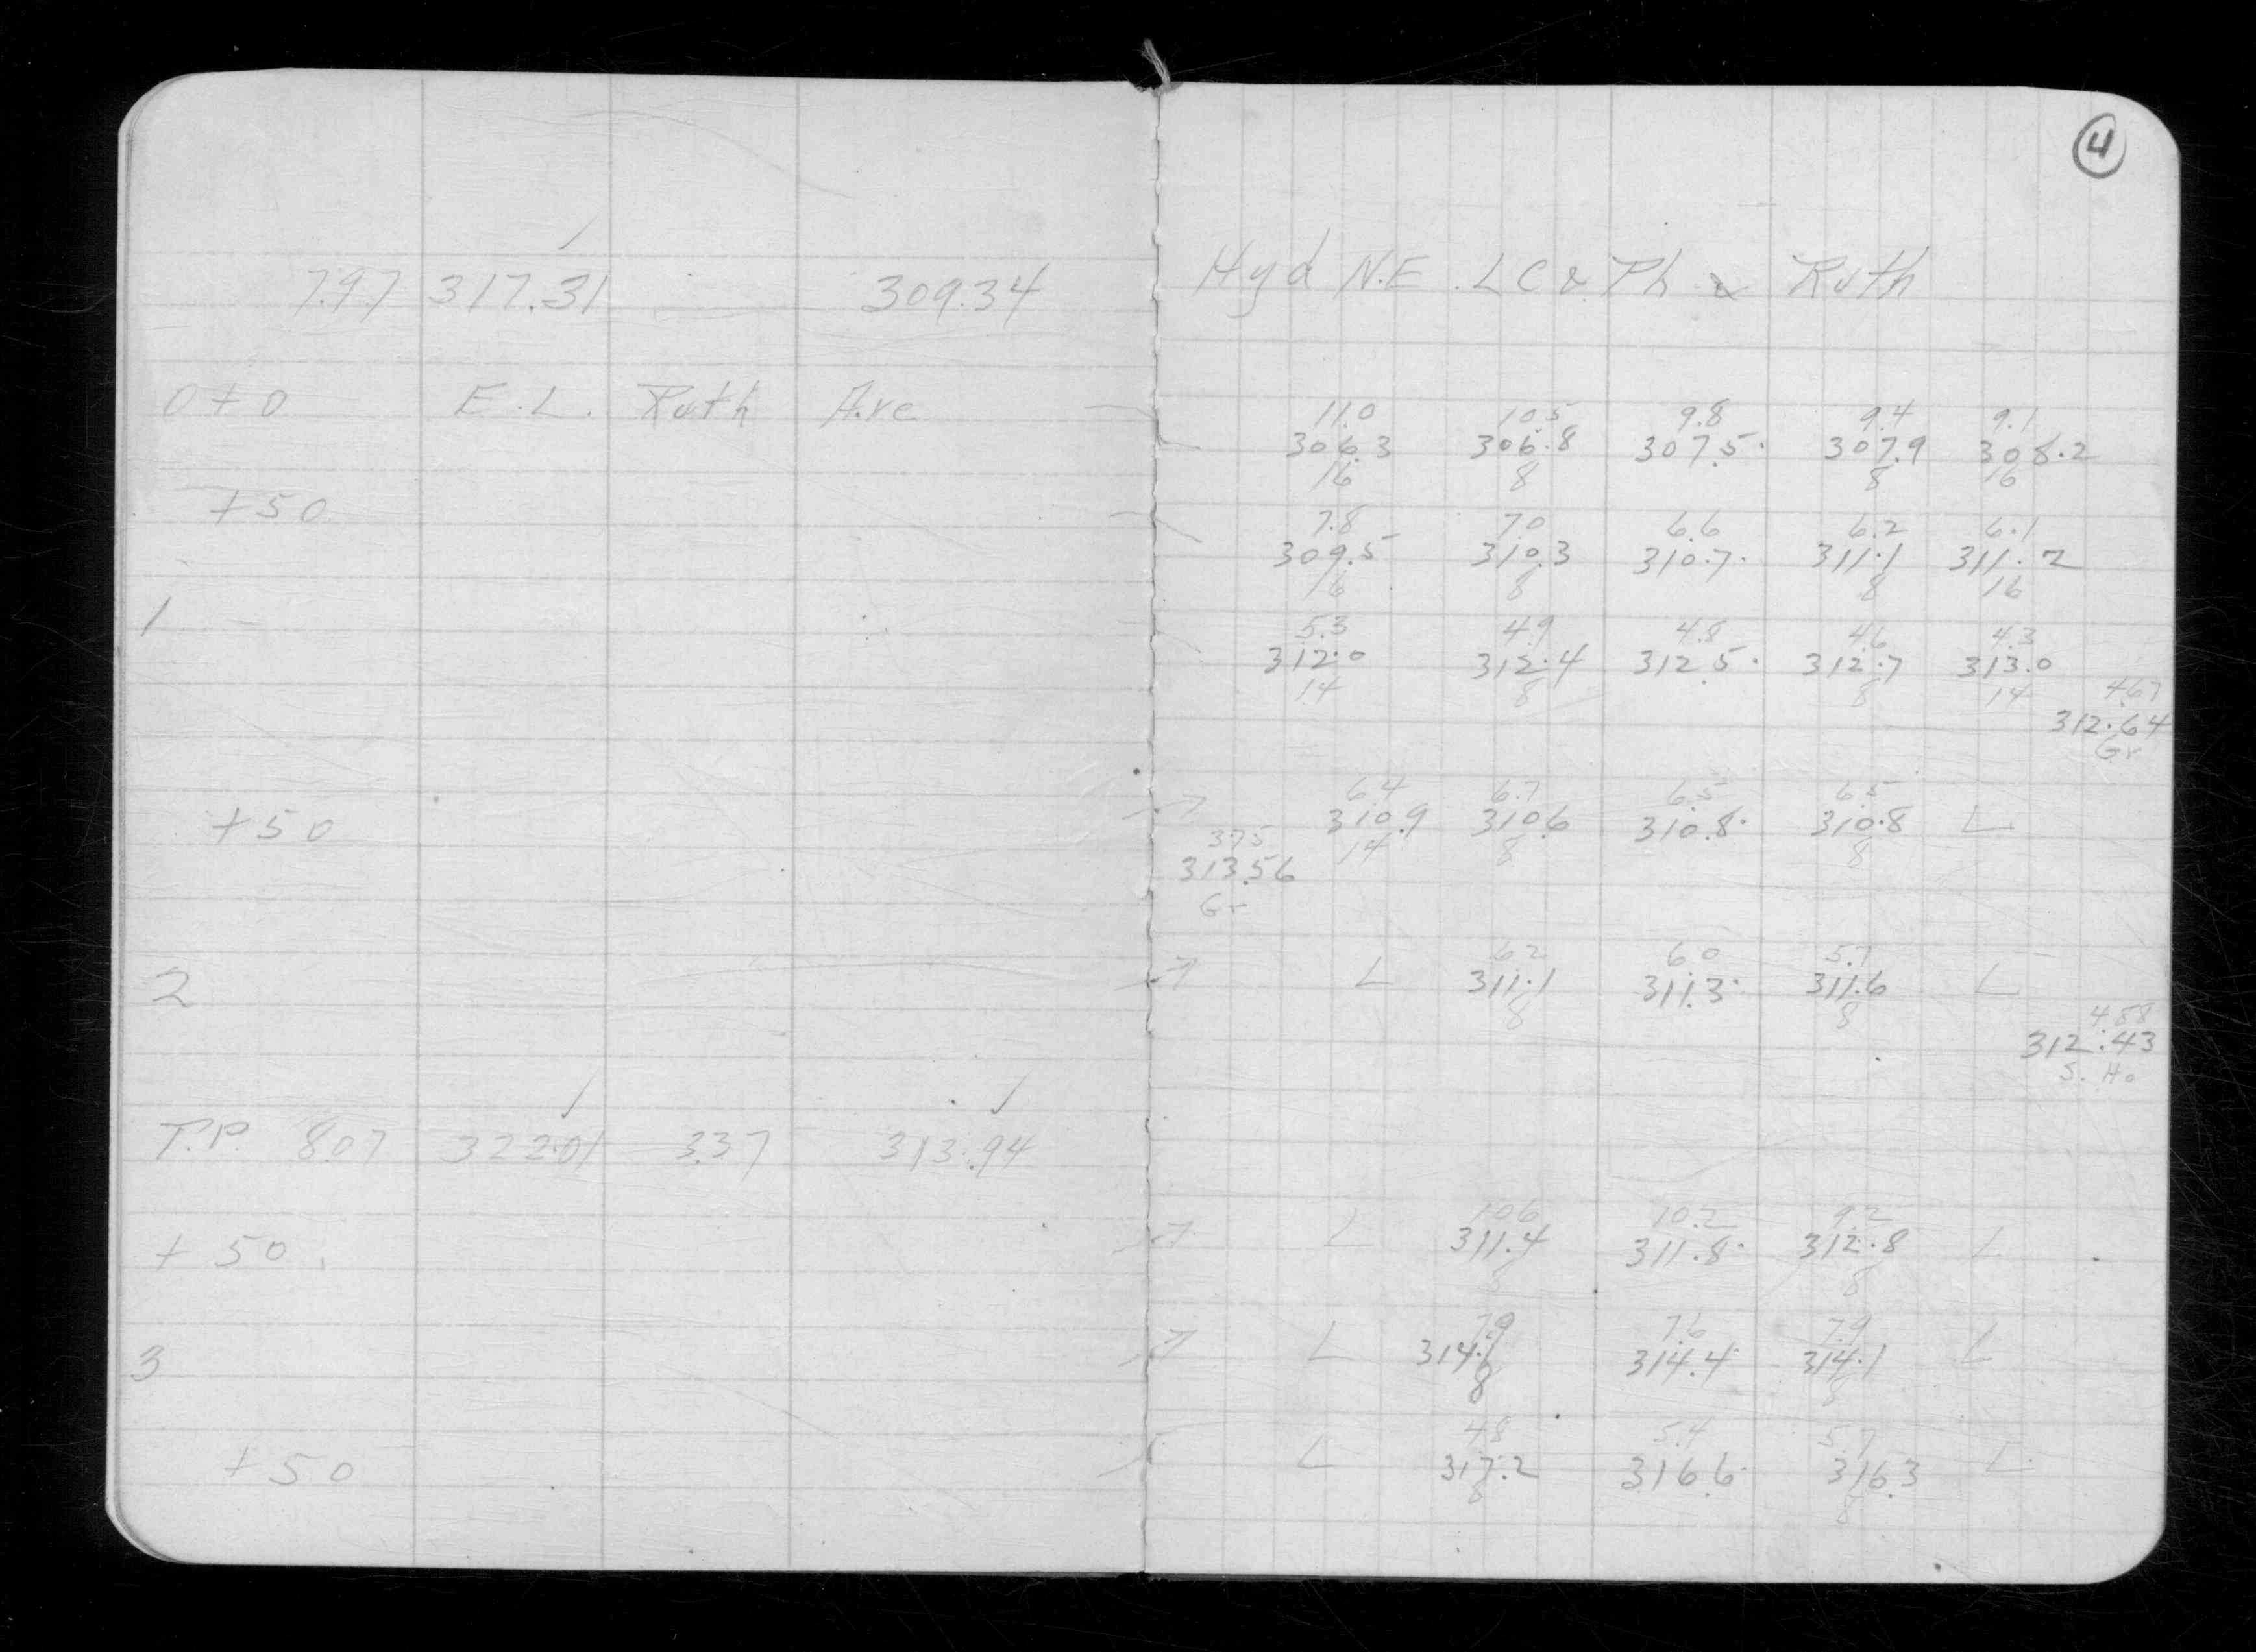 4
7.97 317.31 309.34 Hyd N.E. L C & Th & Ruth
0+0 E.L. Ruth Ave
11.0 10.5 9.8 9.4 9.1
306.3 306.8 307.5 307.9 308.2
16 8 8 16
+50
7.8 7.0 6.6 6.2 6.1
309.5 310.3 310.7 311.1 311.2
16 8 8 16
1
5.3 4.9 4.8 4.6 4.3
312.0 312.4 312.5 312.7 313.0
14 8 8 14
4.67
312.64
Gr
+50
6.4 6.7 6.5 6.5
310.9 310.6 310.8 310.8 L
14 8 8
3.75
313.56
Gr
2
6.2 6.0 5.7
L 311.1 311.3 311.6 L
8 8
4.88
312.43
S. Ho
T.P. 8.07 322.01 3.37 313.94
+50
10.6 10.2 9.2
L 311.4 311.8 312.8 L
8 8
3
7.9 7.6 7.9
L 314.1 314.4 314.1 L
8 8
+50
4.8 5.4 5.7
L 317.2 316.6 316.3 L
8 8